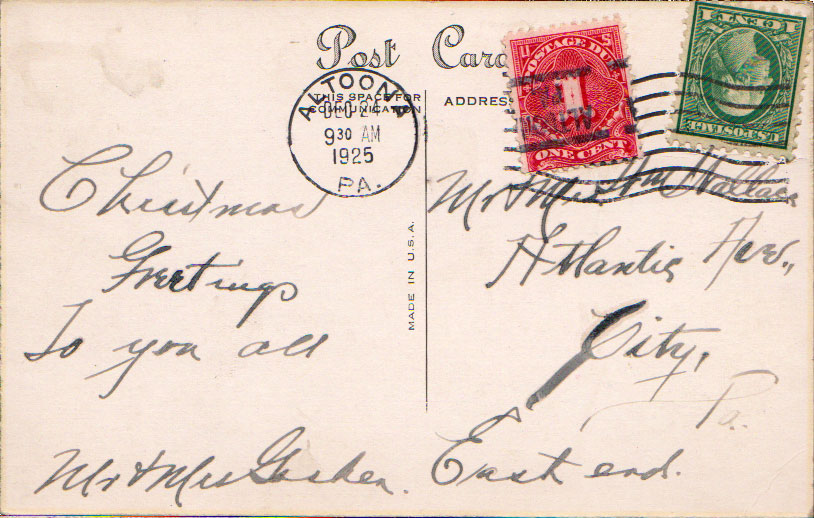 Post Card
THIS SPACE FOR
COMMUNICATION
ADDRESS
ALTOONA
DEC 24
9 30 AM
1925
PA.
POSTAGE DUE
1
ONE CENT
1 CENT 1
U.S. POSTAGE
MADE IN U.S.A.
Christmas
Greetings
To you all
Mr & Mrs
Mr & Mrs Wm Wallace
Atlantic Ave.,
City,
Pa.
East end.